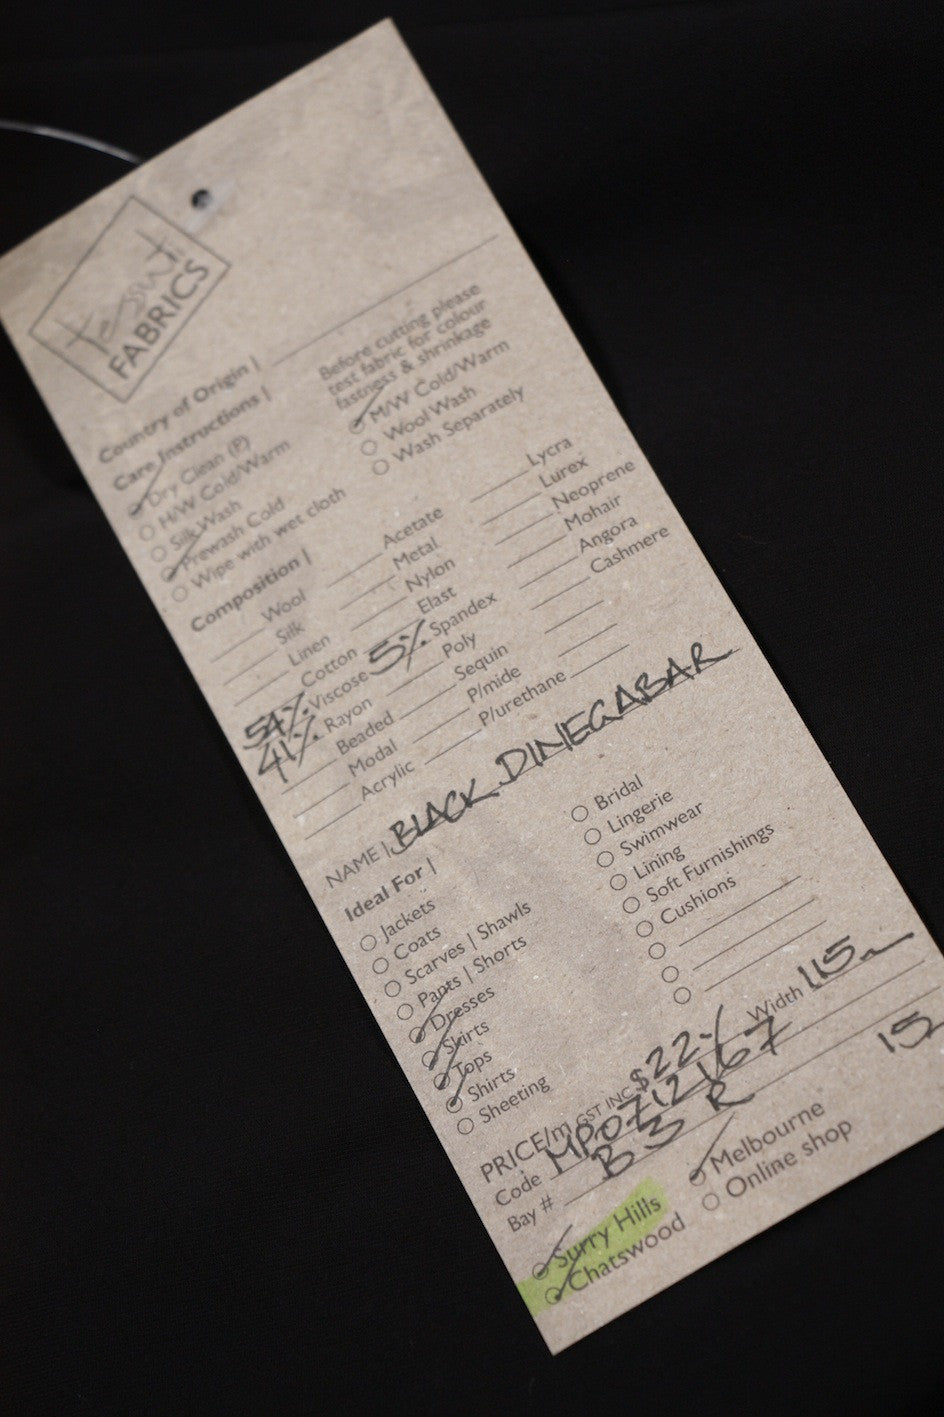 tessuti
FABRICS
Country of Origin |
Care Instructions |
Dry Clean (P)
H/W Cold/Warm
Silk Wash
Prewash Cold
Wipe with wet cloth
Before cutting please
test fabric for colour
fastness & shrinkage
M/W Cold/Warm
Wool Wash
Wash Separately
Composition |
Wool
Silk
Linen
Cotton
54% Viscose
41% Rayon
Beaded
Modal
Acrylic
Acetate
Metal
Nylon
Elast
5% Spandex
Poly
Sequin
P/mide
P/urethane
Lycra
Lurex
Neoprene
Mohair
Angora
Cashmere
NAME | BLACK DINEGABAR
Ideal For |
Jackets
Coats
Scarves | Shawls
Pants | Shorts
Dresses
Skirts
Tops
Shirts
Sheeting
Bridal
Lingerie
Swimwear
Lining
Soft Furnishings
Cushions
PRICE/m GST INC $22-/ Width 115
Code MP0712167
Bay # B3R 15
Surry Hills
Chatswood
Melbourne
Online shop